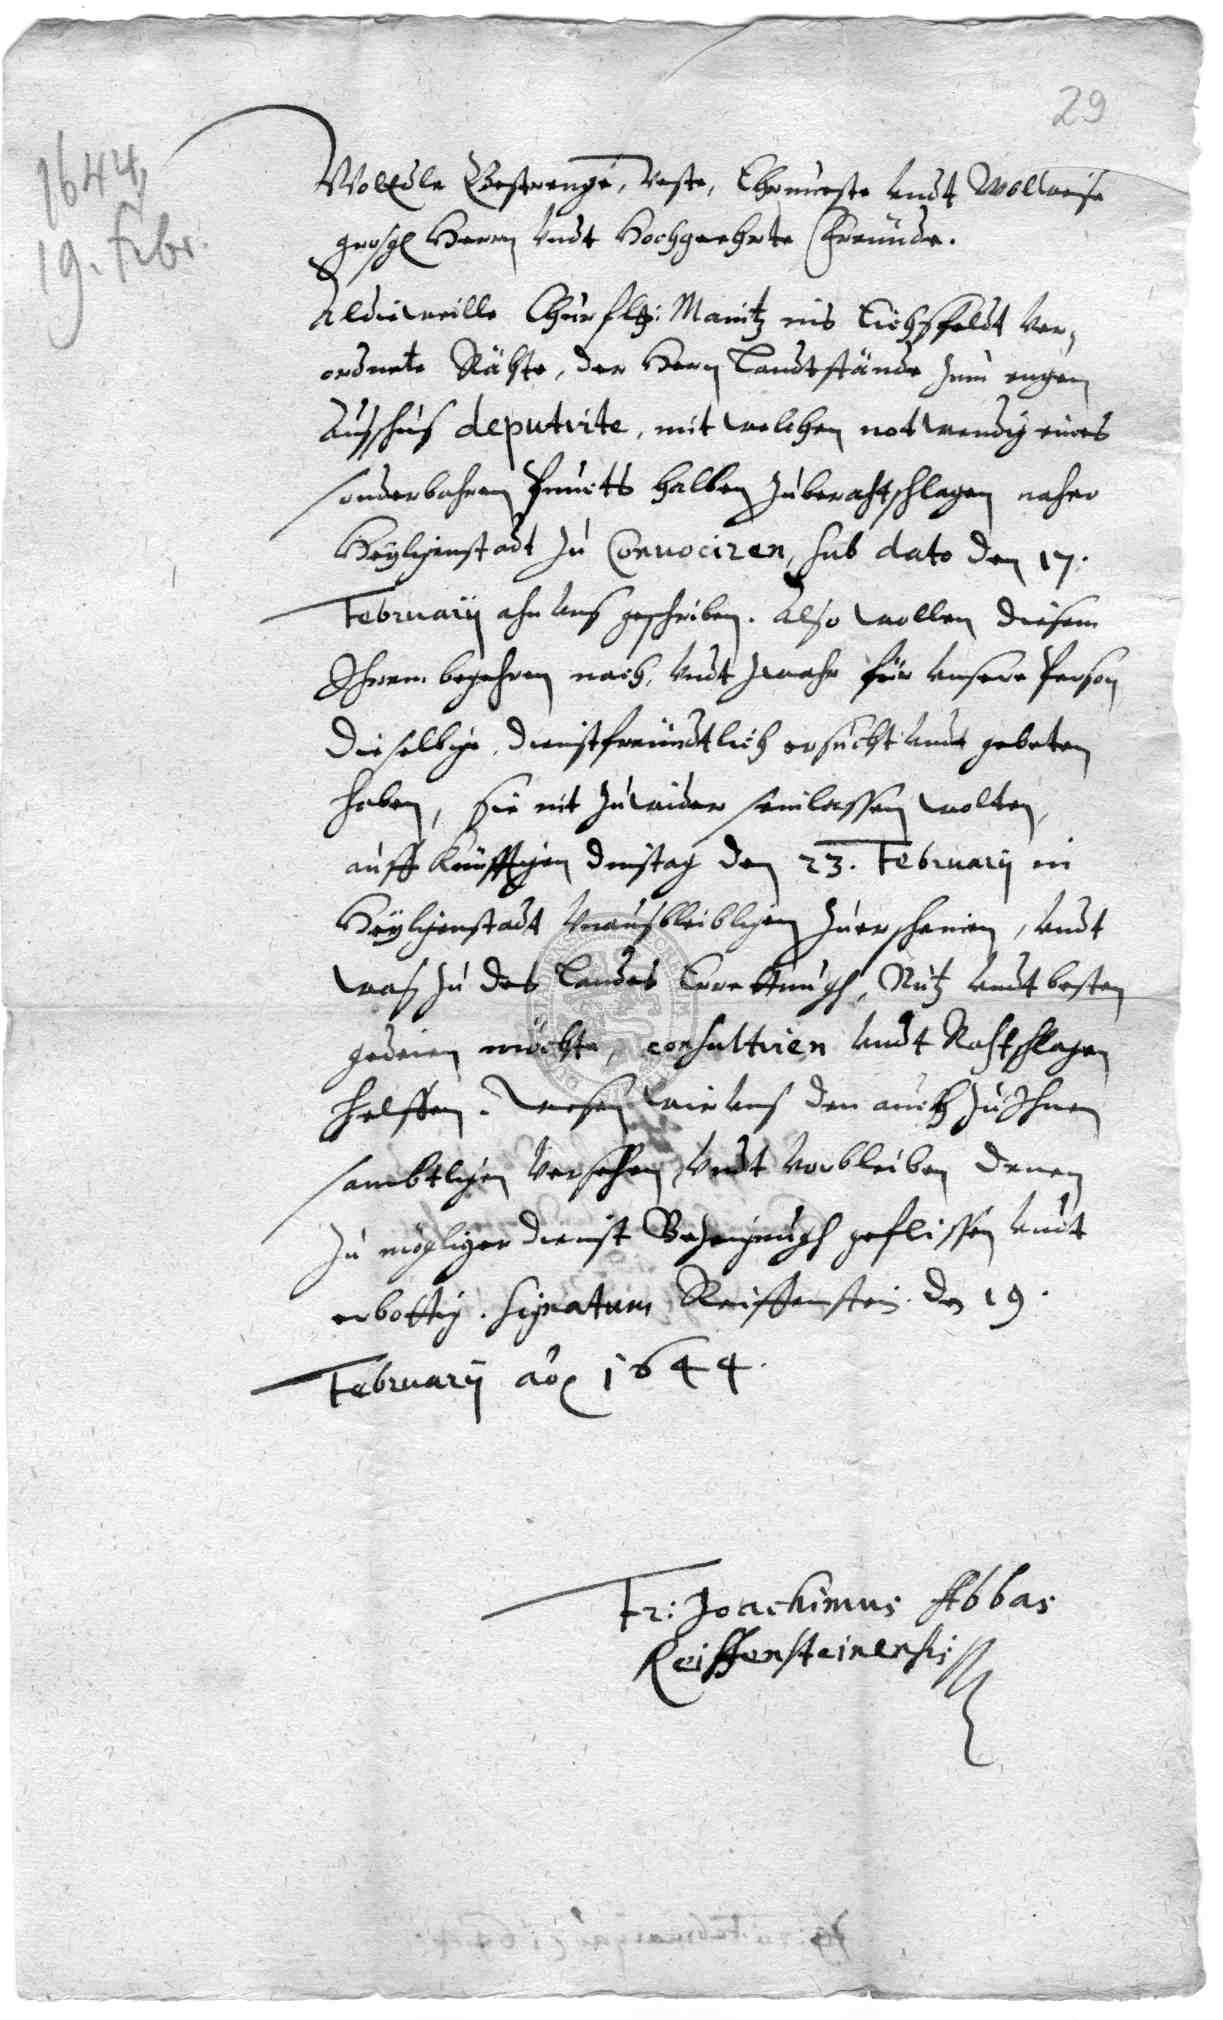 29
1644,
19. Febr.
WolEdle Gestrenge, Veste, Ehrnueste undt Wollweise
grosgl Herrn undt Hochgeehrte Freünde.
Aldieweille Churfltz: Maintz ins Eichsfeldt ver-
ordnete Räthe, der Herrn Landtstände zum engen
Ausschus deputirte, mit welchen notwendig eines
sonderbahren Puncts halben zuberathschlagen naher
Heyligenstadt zu Conuociren, sub dato den 17.
February ahn uns geschrieben. Also wollen diesem
Ihrem begehren nach, undt zwahr für unsere Person
dieselbige dienstfreündtlich ersucht undt gebeten
haben, sie nit zuwider sein lassen wolten,
auff künfftigen dinstag den 23. February in
Heyligenstadt unausbleibligen zuerscheinen, undt
was zu des Landes Errettungh, Nutz undt besten
gedeien möchte, consultiren undt Rathschlagen
helffen. wir uns den auch zu Ihnen
sambtligen versehen, undt verbleiben denen
zu mögliger dienst Bezeigungh geflissen undt
erböttig. Signatum Reiffenstein den 19.
February ao 1644.
Fr: Joachimus Abbas
Reiffensteinensis